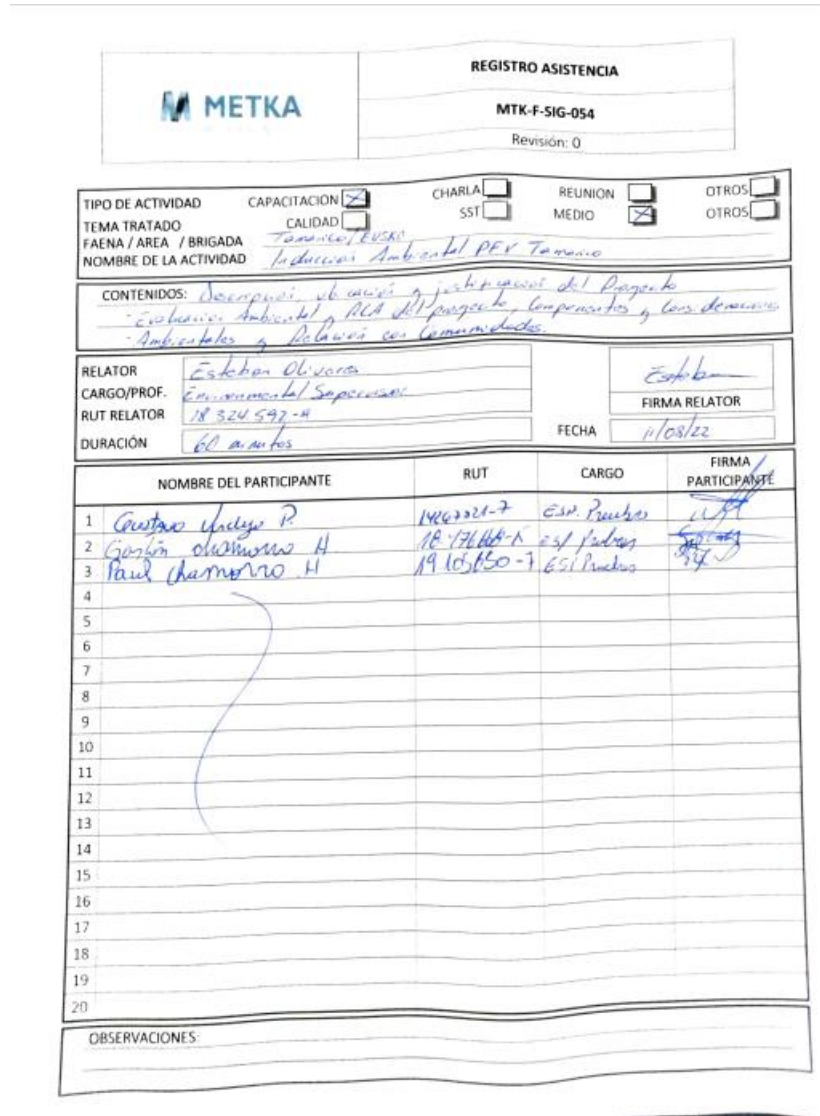 METKA
REGISTRO ASISTENCIA
MTK-F-SIG-054
Revisión: 0
TIPO DE ACTIVIDAD CAPACITACION CHARLA REUNION OTROS
TEMA TRATADO CALIDAD SST MEDIO OTROS
FAENA / AREA / BRIGADA Tamarico/EUSKO
NOMBRE DE LA ACTIVIDAD Induccion Ambiental PFV Tamarico
CONTENIDOS: Descripcion, ubicación y justificación del Proyecto
-Evaluacion Ambiental y RCA del proyecto, Componentes y Consideraciones
-Ambientales y Relacion con Comunidades.
RELATOR Esteban Olivares
CARGO/PROF. Environmental Supervisor
RUT RELATOR 18 324 592-
DURACIÓN 60 minutos
Esteba
FIRMA RELATOR
FECHA 11/08/22
NOMBRE DEL PARTICIPANTE RUT CARGO FIRMA PARTICIPANTE
1 Gustavo P. -7 Esp. Pruebas
2 Gastón chamorro H esp pruebas
3 Paul chamorro H -7 ESP Pruebas
4
5
6
7
8
9
10
11
12
13
14
15
16
17
18
19
20
OBSERVACIONES: